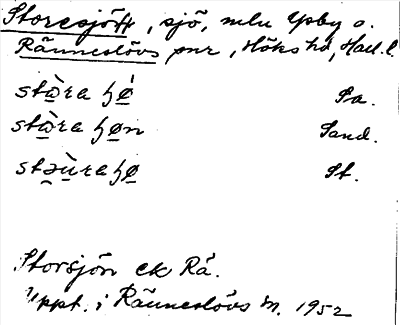 Storesjön, sjö, mlu Ysby o.
Ränneslövs snr, Höks hd, Hall. l.
stɷ̀ra ɧø̀ Sa.
stɷ̀ra ɧøn Sand.
stəù̀ra ɧø St.
Storsjön ek Rä.
Uppt. i Ränneslövs sn. 1952